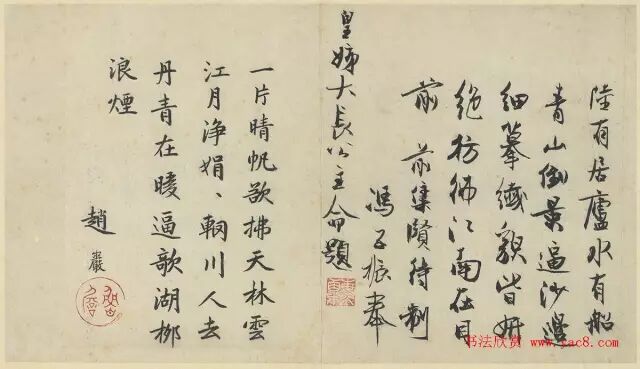 陸有居廬水有船
青山倒景逼沙邊
細摹纖貌皆妍
絕彷彿江南在目
前 前集賢待制
馮子振奉
皇姊大長公主命題
一片晴帆欲拂天林雲
江月淨娟、輞川人去
丹青在逼欹湖柳
浪煙
趙巖
书法欣赏
www.yac8.com